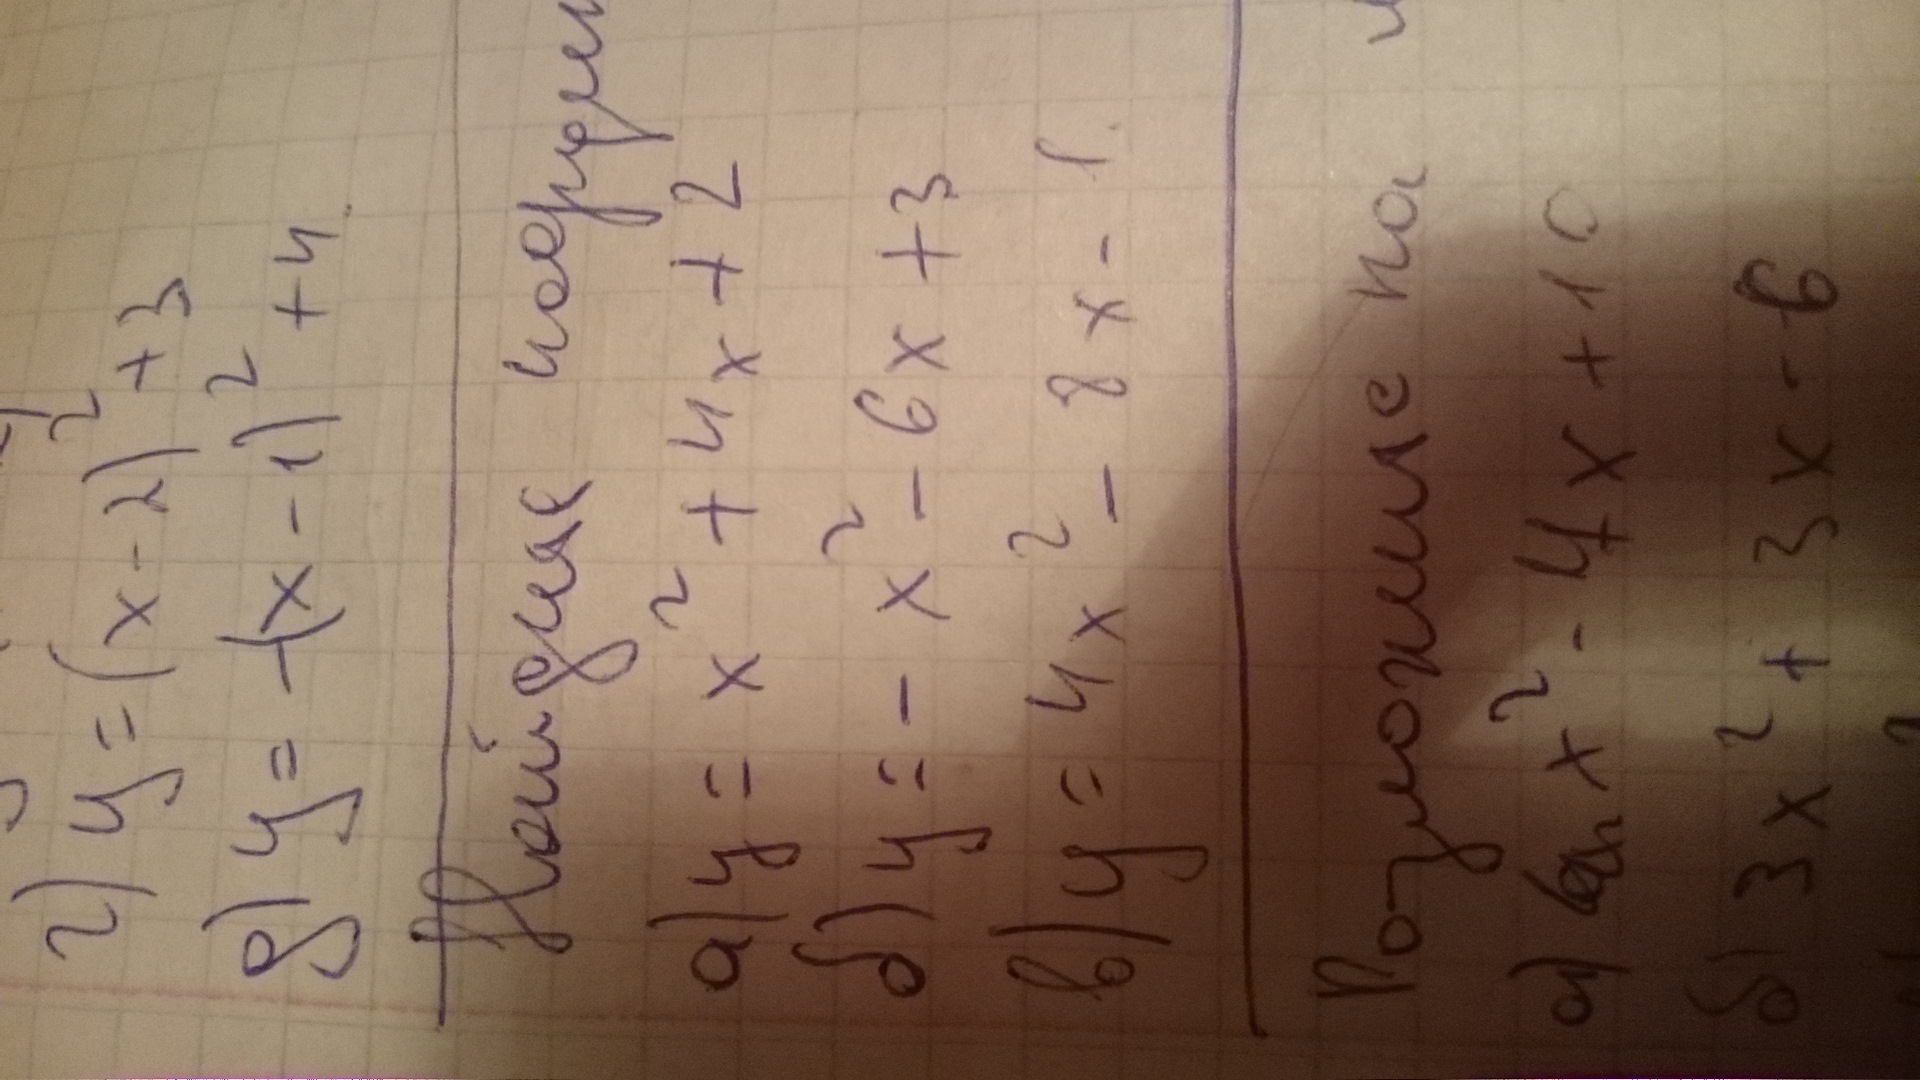 г) y = (x - 2)² + 3
д) y = -(x - 1)² + 4.
Найдите
а) y = x² + 4x + 2
б) y = - x² - 6x + 3
в) y = 4x² - 8x - 1.
Разложите на
а) x² - 4x + 10
б) 3x² + 3x - 6